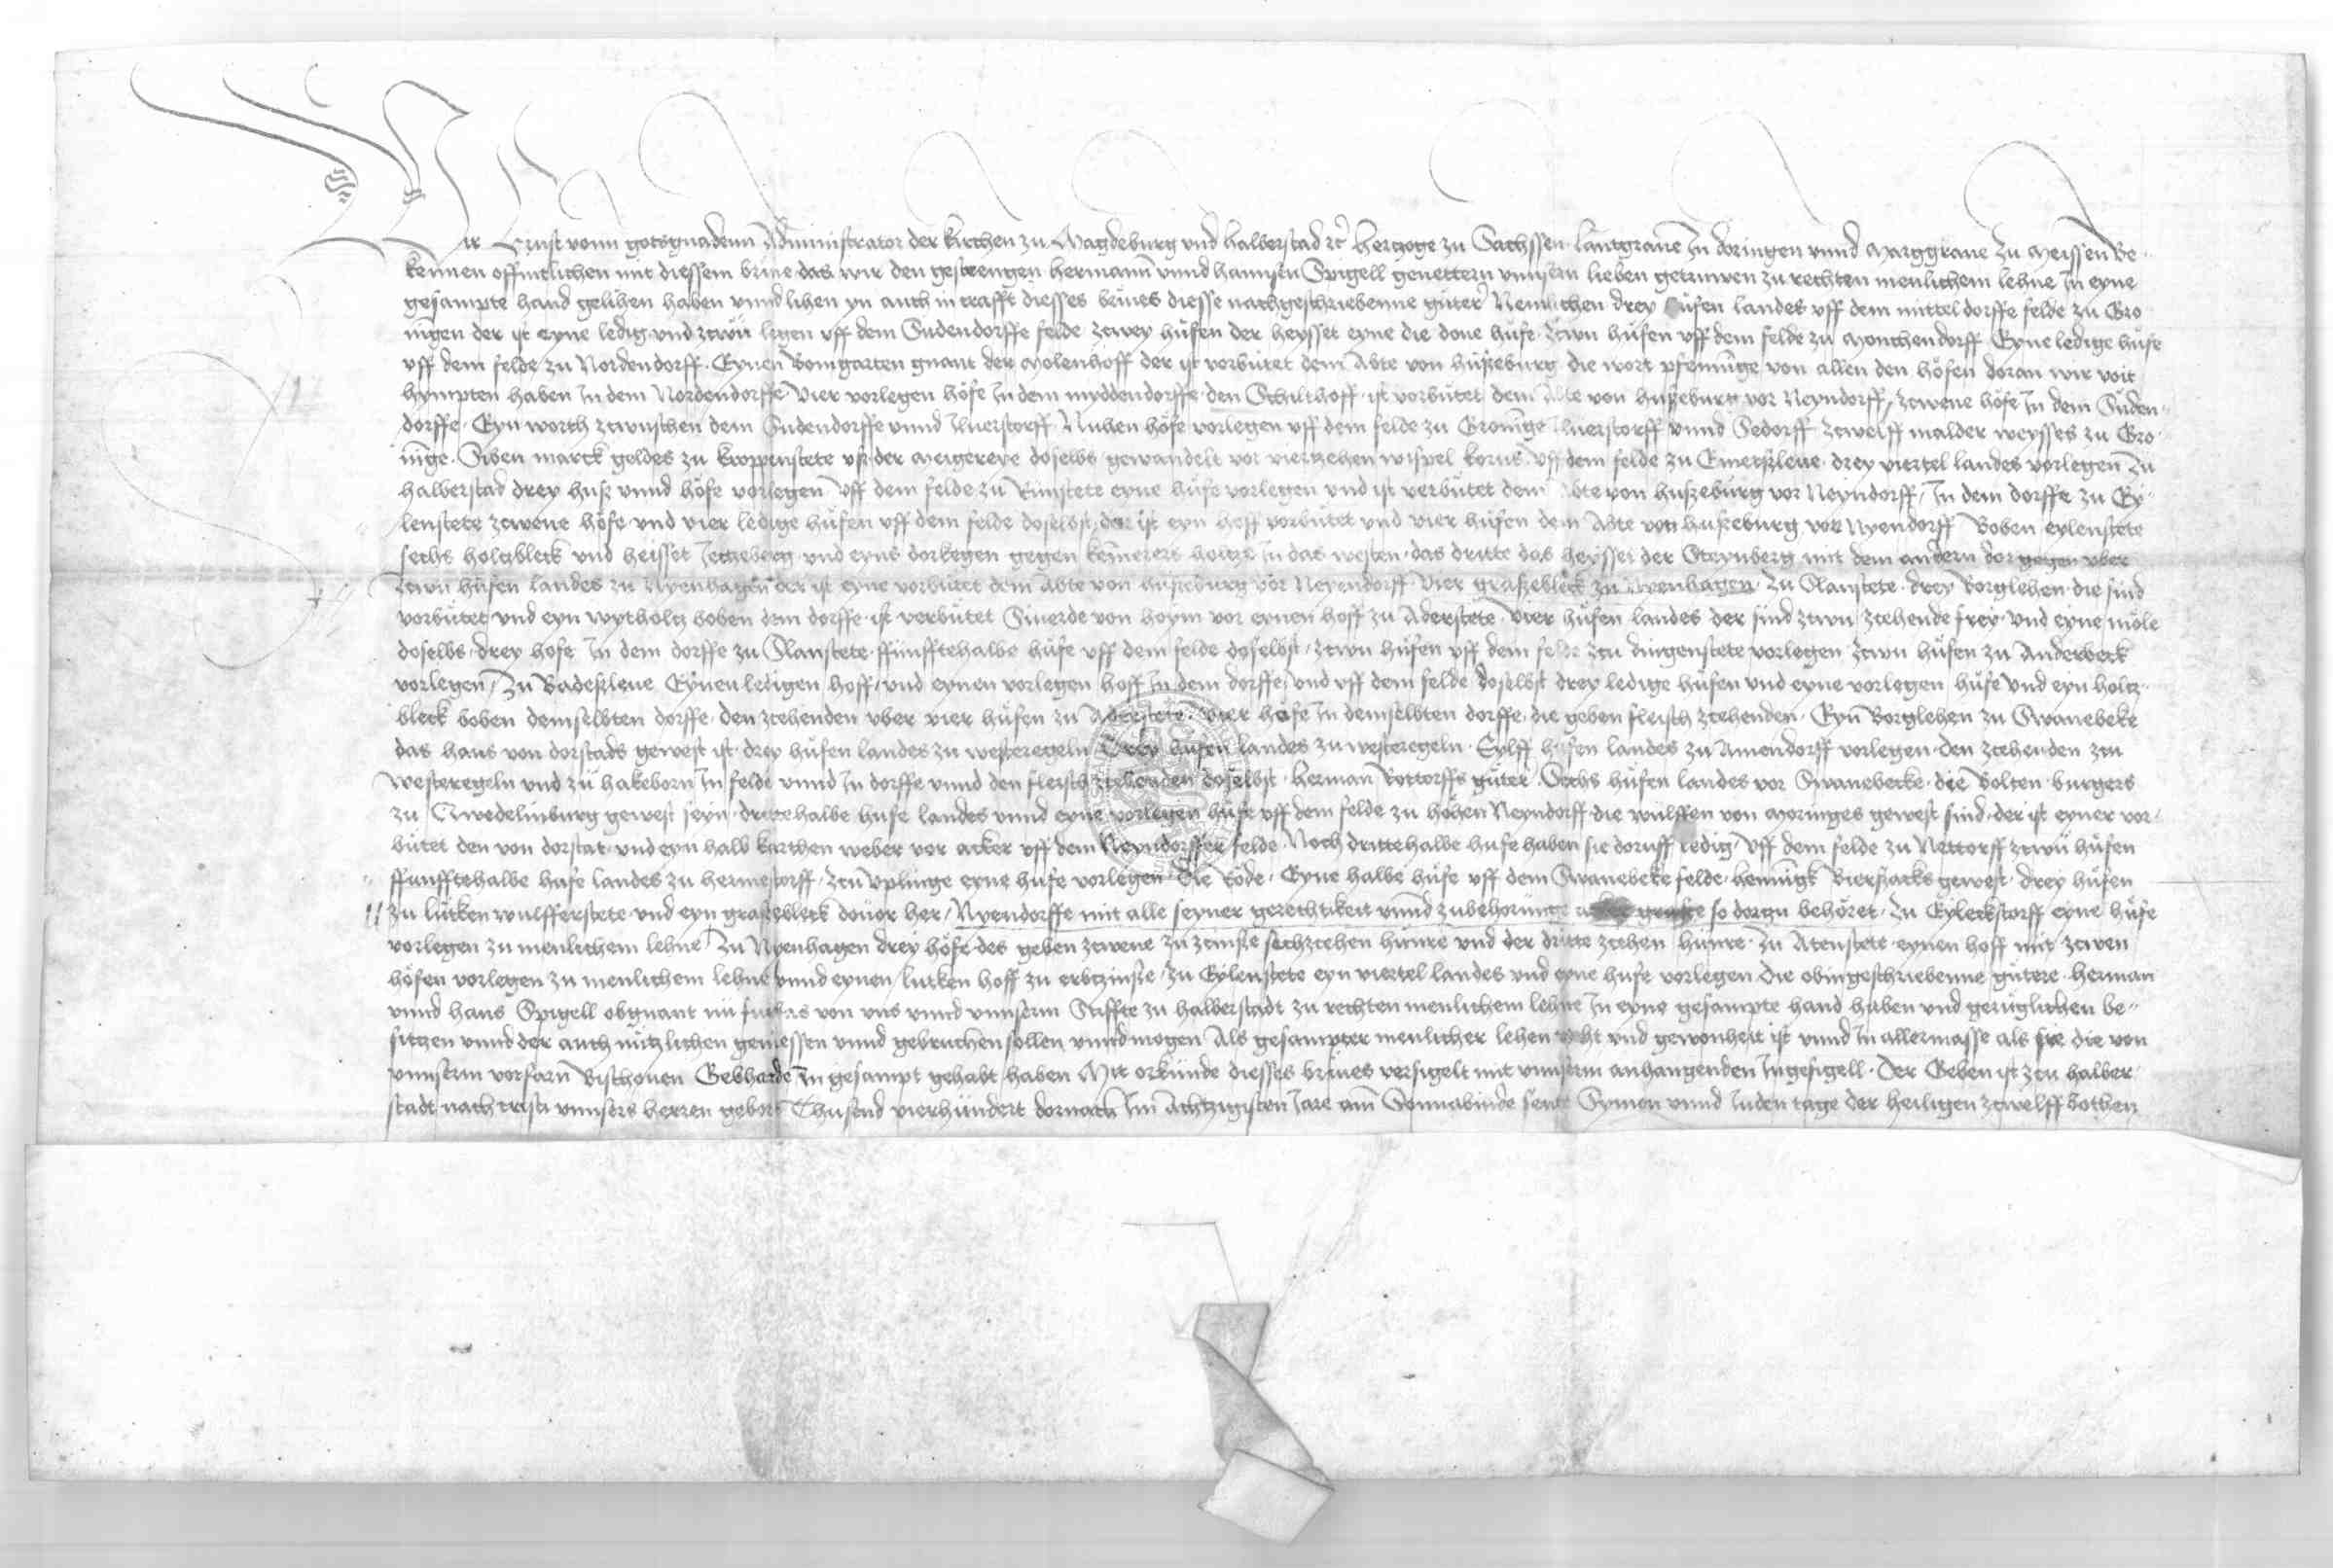 Wir Ernst vonn gotsgnadenn Administrator der kirchen zu Magdeburg vnd halberstad ꝛc̃ hertzoge zu Sachssen lantgraue In doringen vnnd Marggraue zu Meissen Be-
kennen offintlichen mit diessem briue das wir den gestrengen hermann vnnd hannsen Spigell geuettern vnnsern lieben getruwen zu rechten menlichem lehne In eyne
gesampte hand gelihen haben vnnd lihen yn auch in crafft diesses briues diesse nachgeschriebenne guter Nemlichen drey hufen landes vff dem mittel dorffe felde zu Gro
nigen der ist eyne ledig vnd zcwu ligen vff dem Sudendorffe felde zcwey hufen der heysset eyne die done hufe zcwu hufen vff dem felde zu Monchendorff Eyne ledige hufe
vff dem felde zu Nordendorff. Eynen Bomgarten gnant der Molenhoff der ist vorbutet dem Abte von hußeburg die wort pfennige von allen den höfen doran wir voit
hympten haben In dem Nordendorffe vier vorlegen höfe In dem myddendorffe den Schulthoff ist vorbutet dem Abte von hußeburg vor Neyndorff, zcwene höfe In dem Suden-
dorffe. Eyn worth zcwuschen dem Sudendorffe vnnd Iluerstorff Nuhen höfe vorlegen vff dem felde zu Gronige Iluerstorff vnnd Sedorff zcwelff malder weysses zu Gro-
nige. Siben marck geldes zu kroppenstete vß der Meigereye doselbs gewandelt vor viertzehen wispel korns vff dem felde zu Emerßleue. drey viertel landes vorlegen zu
halberstad drey huß vnnd höfe vorlegen vff dem felde zu Runstete eyne hufe vorlegen vnd ist verbutet dem Abte von hußeburg vor Neyndorff, In dem dorffe zu Ey-
lenstete zcwene höfe vnd vier ledige hufen vff dem felde doselbst, der ist eyn hoff vorbutet vnd vier hufen dem Abte von hußeburg vor Nyendorff Boben eylenstete
sechs holtzbleck vnd heisset Ietzeberg vnd eyns dorkegen gegen kemerers holtze In das westen das dritte das heysset der Steynberg mit dem andern dor gegen vber
Zcwu hufen landes zu Nyenhagen der ist eyne vorbutet dem Abte von hußeburg vor Neyendorff vier graßebleck zu Nyenhagen. zu Slanstete. drey Borglehen. die sind
vorbutet vnd eyn wytholtz boben dem dorffe. ist verbutet Siuerde von hoym vor eynen hoff zu Aderstete. vier hufen landes der sind zcwu zcehende frey vnd eyne möle
doselbs. drey hofe In dem dorffe zu Slanstete. ffunfftehalbe hufe vff dem felde doselbst, zcwu hufen vff dem felde zcu dingenstete vorlegen zcwu hufen zu Anderbeck
vorlegen, Zu Badeßleue Eynen ledigen hoff, vnd eynen vorlegen hoff In dem dorffe, vnd vff dem felde doselbst drey ledige hufen vnd eyne vorlegen hufe vnd eyn holtz-
bleck boben demselbten dorffe. den zcehenden vber vier hufen zu Aderstete. vier höfe In demselbten dorffe. die geben fleisch zcehenden. Eyn Borglehen zu Swanebeke
das hans von dorstads gewest ist. drey hufen landes zu westeregeln Drey hufen landes zu westeregeln. Eylff hufen landes zu Amendorff vorlegen. den zcehenden zcu
westeregeln vnd zu hakeborn In felde vnnd In dorffe vnnd den fleisch zcehenden doselbst. herman Rottorffs guter Sechs hufen landes vor Swanebecke. die Bolten. burgers
zu Qwedelinburg gewest seyn. drittehalbe hufe landes vnnd eyne vorlegen hufe vff dem felde zu hohen Neyndorff die wulffen von Moringes gewest sind. der ist eyner vor-
butet den von dorstat vnd eyn halb karthen weber vor acker vff dem Neyndorffer felde. Noch drittehalbe hufe haben sie doruff ledig, vff dem felde zu Nettorff zcwu hufen
ffunfftehalbe hufe landes zu hermestorff. zcu vplinge eyne hufe vorlegen die Rode. Eyne halbe hufe vff dem Swanebeke felde. hennigk Bierßacks gewest. drey hufen
zu lutken wulfferstete vnd eyn graßebleck douor her, Nyendorffe mit alle seyner gerechtikeit vnnd zubehorunge so dorzu behöret, zu Eyleckstorff eyne hufe
vorlegen zu menlichem lehne Zu Nyenhagen drey höfe. des geben zcwene zu zcinße sechzcehen hunre vnd der dritte zcehen hunre. zu Atenstete. eynen hoff mit zcwen
höfen vorlegen zu menlichem lehne vnnd eynen lutken hoff zu erbtzinße. zu Eylenstete eyn viertel landes vnd eyne hufe vorlegen die obingeschriebenne gutere. herman
vnnd hans Spigell obgnant nu furbas von vns vnnd vnnserm Stiffte zu halberstadt zu rechten menlichem lehne In eyne gesampte hand haben vnd geruglichen be-
sitzen vnnd der auch nutzlichen geniessen vnnd gebruchen sollen vnnd mogen Als gesampter menlicher lehen recht vnd gewonheit ist vnnd In allermasse als sie die von
vnnserm vorfarn Bischouen Gebharde In gesampt gehabt haben Mit orkunde diesses briues versigelt mit vnnserm anhangenden Ingesigell. Der Geben ist zcu halber-
stadt nach cristi vnnsers herren gebort Thusend vierhundert dornach Im Achtzigisten Iare am Sonnabinde sente Symon vnnd Iuden tage der heiligen zcwelff bothen